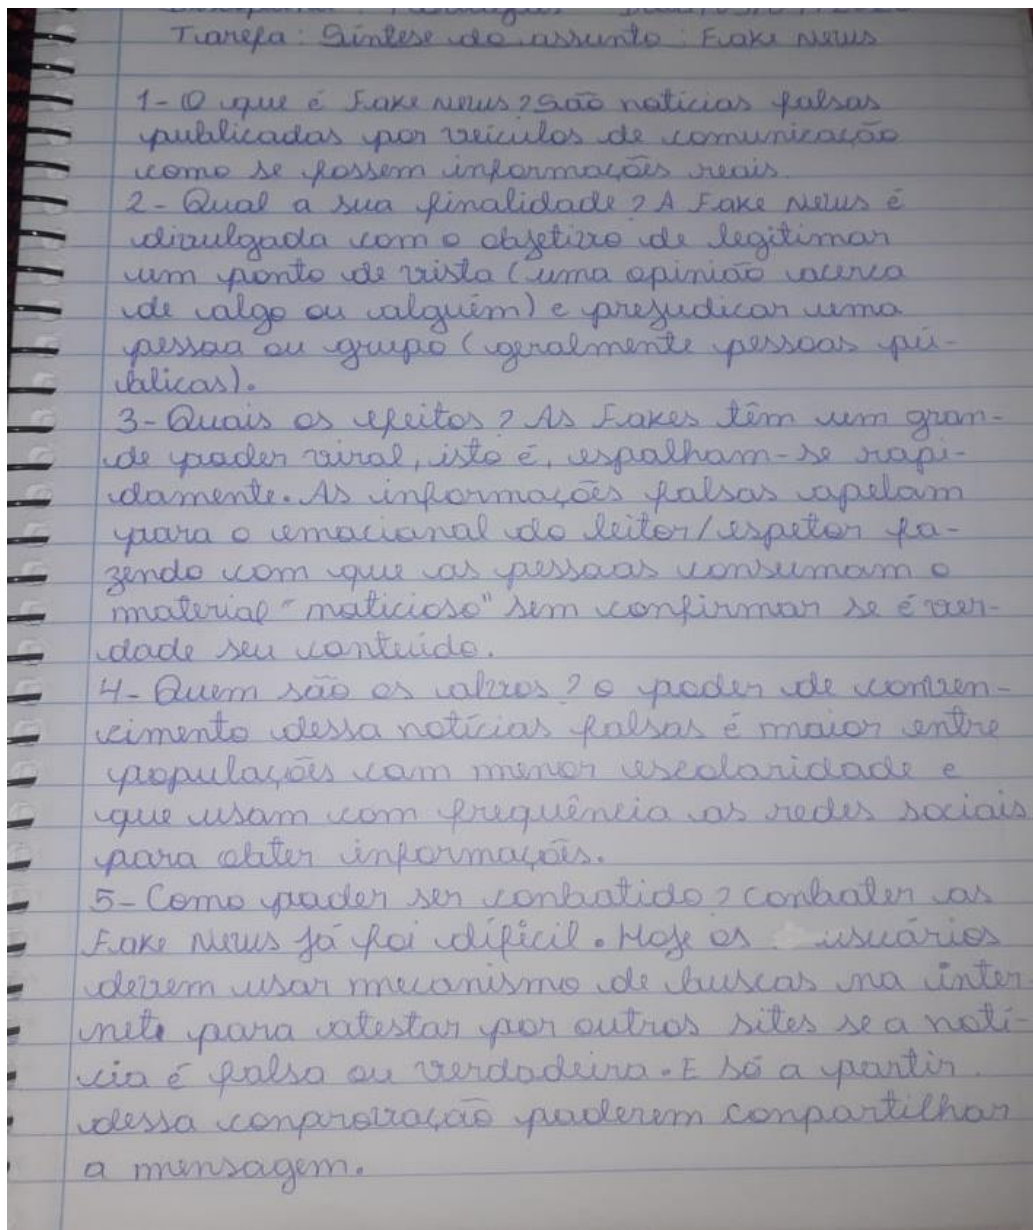 Tarefa: Síntese do assunto: Fake News
1- O que é Fake News? São notícias falsas
publicadas por veículos de comunicação
como se fossem informações reais.
2- Qual a sua finalidade? A Fake News é
divulgada com o objetivo de legitimar
um ponto de vista (uma opinião acerca
de algo ou alguém) e prejudicar uma
pessoa ou grupo (geralmente pessoas pú-
blicas).
3- Quais os efeitos? As Fakes têm um gran-
de poder viral, isto é, espalham-se rapi-
damente. As informações falsas apelam
para o emocional do leitor/espetor fa-
zendo com que as pessoas consumam o
material "noticioso" sem confirmar se é ver-
dade seu conteúdo.
4- Quem são os alvos? o poder de conven-
cimento dessa notícias falsas é maior entre
populações com menor escolaridade e
que usam com frequência as redes sociais
para obter informações.
5- Como poder ser conbatido? conbater as
Fake News já foi difícil. Hoje os usuários
devem usar mecanismo de buscas na inter
net para atestar por outros sites se a notí-
cia é falsa ou verdadeira. E só a partir
dessa conprovação poderem conpartilhar
a mensagem.